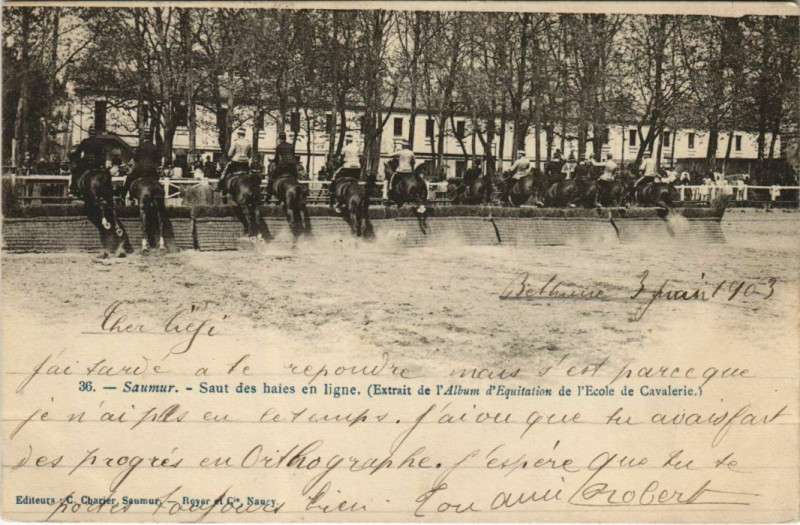 Bethune 3 juin 1903
Cher Gégé
j'ai tardé a te repondre mais s'est parceque
36. — Saumur. - Saut des haies en ligne. (Extrait de l'Album d'Equitation de l'Ecole de Cavalerie.)
je n'ai pas eu le temps. j'ai vu que tu avais fait
des progrés en Orthographe. j'espére que tu te
Editeurs : C. Charier, Saumur. Royer et Cie, Nancy.
portes toujours bien. Ton ami Robert